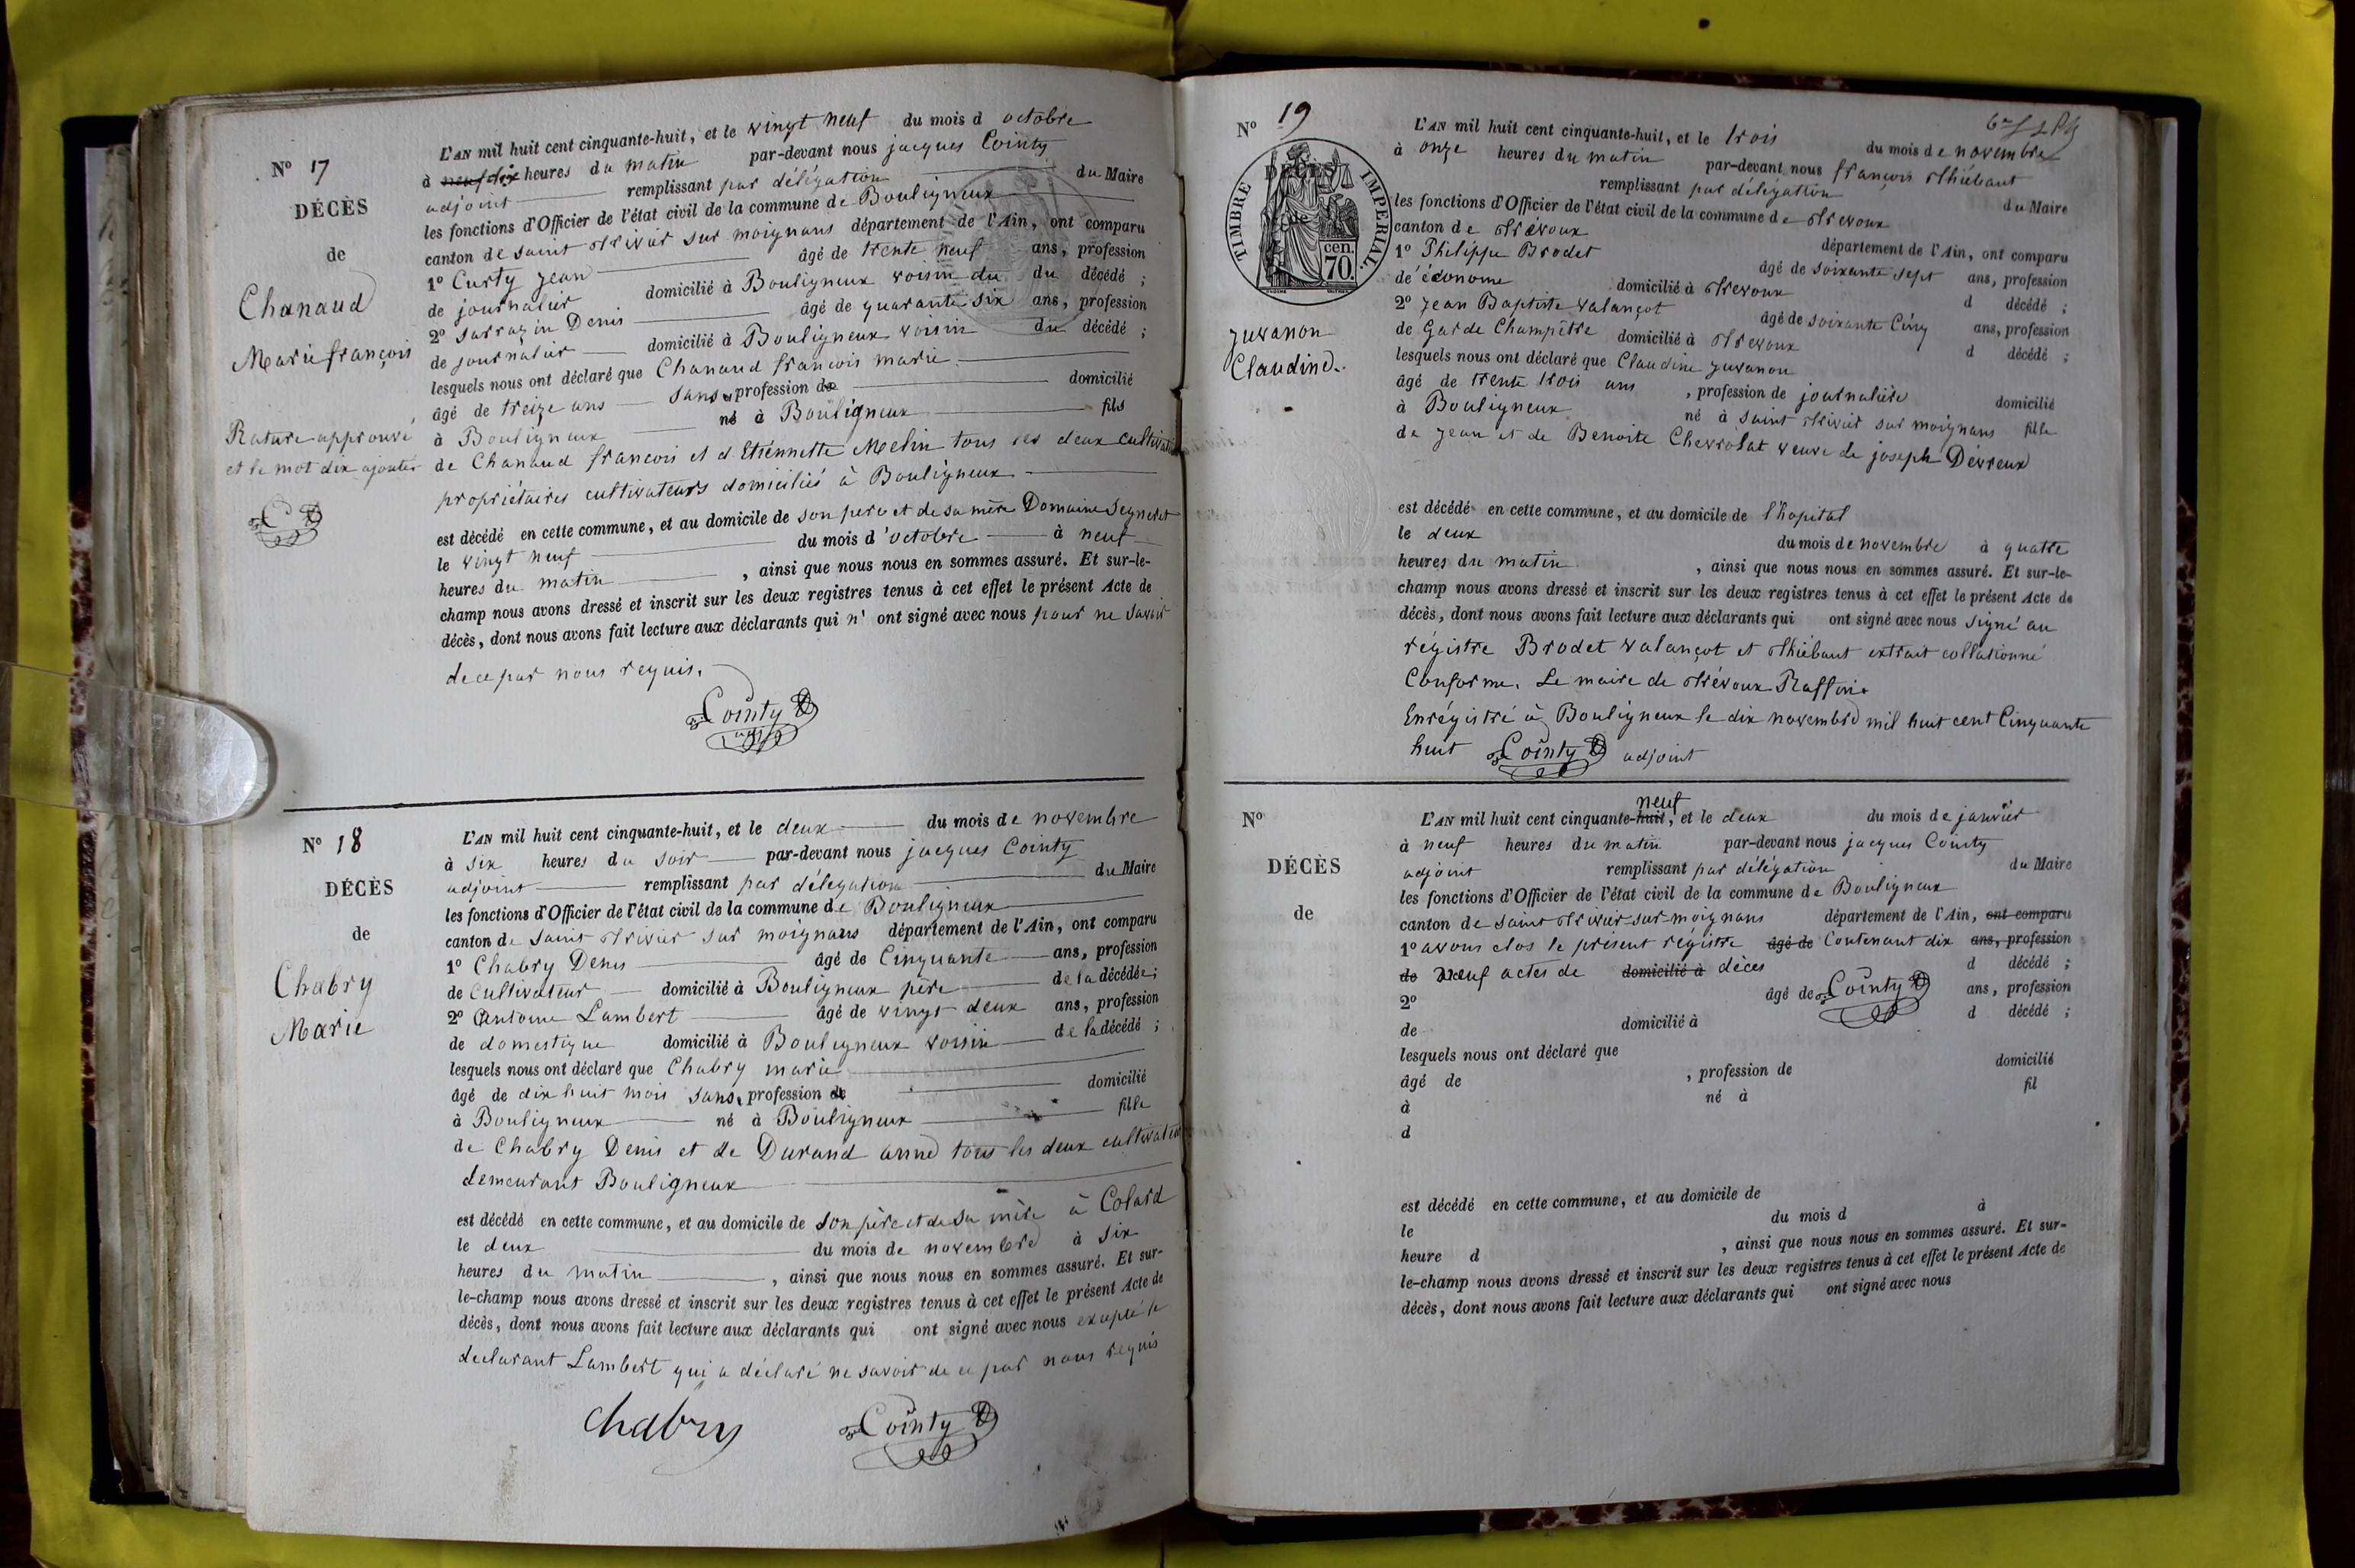 N° 17
DÉCÈS
de
Chanaud
Marie françois
Rature approuvé
et le mot dix ajouter
L'AN mil huit cent cinquante-huit, et le vingt neuf du mois d octobre
à heures du matin par-devant nous jacques Cointy
adjoint remplissant par délégation du Maire
les fonctions d'Officier de l'état civil de la commune de Bouligneux
canton de saint trivier sur moignans département de l'Ain, ont comparu
1° Curty jean âgé de trente neuf ans, profession
de journalier domicilié à Bouligneux voisin du du décédé ;
2° sarrazin Denis âgé de quarante six ans, profession
de journalier domicilié à Bouligneux voisin du décédé ;
lesquels nous ont déclaré que Chanaud francois marie
âgé de treize ans sans profession de domicilié
à Bouligneux né à Bouligneux fils
de Chanaud francois et d Etiennette Melin tous les deux cultivate
propriétaires cultivateurs domiciliés à Bouligneux
est décédé en cette commune, et au domicile de son pere et de sa mère Domaine
le vingt neuf du mois d'octobre à neuf
heures du matin, ainsi que nous nous en sommes assuré. Et sur-le-
champ nous avons dressé et inscrit sur les deux registres tenus à cet effet le présent Acte de
décès, dont nous avons fait lecture aux déclarants qui n'ont signé avec nous pour ne savoir
de ce par nous requis.
Cointy
adj
N° 18
DÉCÈS
de
Chabry
Marie
L'AN mil huit cent cinquante-huit, et le deux du mois de novembre
à six heures du soir par-devant nous jacques Cointy
adjoint remplissant par délégation du Maire
les fonctions d'Officier de l'état civil de la commune de Bouligneux
canton de saint trivier sur moignans département de l'Ain, ont comparu
1° Chabry Denis âgé de Cinquante ans, profession
de Cultivateur domicilié à Bouligneux père de la décédée;
2° Antoine Lambert âgé de vingt deux ans, profession
de domestique domicilié à Bouligneux voisin de la décédé ;
lesquels nous ont déclaré que Chabry marie
âgé de dix huit mois sans profession de domicilié
à Bouligneux né à Bouligneux fille
de Chabry Denis et de Durand anne tous les deux cultivateu
demeurant Bouligneux
est décédé en cette commune, et au domicile de son père et de sa mère à Colard
le deux du mois de novembre à six
heures du matin, ainsi que nous nous en sommes assuré. Et sur-
le-champ nous avons dressé et inscrit sur les deux registres tenus à cet effet le présent Acte de
décès, dont nous avons fait lecture aux déclarants qui ont signé avec nous excepté le
declarant Lambert qui a déclaré ne savoir de ce par nous requis
Chabry Cointy
N° 19
DÉCÈS
de
TIMBRE IMPERIAL.
cen.
70.
juvanon
Claudine.
L'AN mil huit cent cinquante-huit, et le trois du mois de novembre
à onze heures du matin par-devant nous françois thiébaut
remplissant par délégation du Maire
les fonctions d'Officier de l'état civil de la commune de trevoux
canton de trévoux département de l'Ain, ont comparu
1° Philippe Brodet âgé de soixante sept ans, profession
de économe domicilié à trevoux d décédé ;
2° jean Baptiste valançot âgé de soixante Cinq ans, profession
de Garde Champêtre domicilié à trevoux d décédé ;
lesquels nous ont déclaré que Claudine juvanon
âgé de trente trois ans, profession de journalière domicilié
à Bouligneux né à saint trivier sur moignans fille
de jean et de Benoite Chevrolat veuve de joseph Devreux
est décédé en cette commune, et au domicile de l'hopital
le deux du mois de novembre à quatre
heures du matin, ainsi que nous nous en sommes assuré. Et sur-le-
champ nous avons dressé et inscrit sur les deux registres tenus à cet effet le présent Acte de
décès, dont nous avons fait lecture aux déclarants qui ont signé avec nous signé au
régistre Brodet valançot et thiébaut extrait collationné
Conforme. Le maire de trévoux Raffin.
Enrégistré à Bouligneux le dix novembre mil huit cent Cinquante
huit Cointy adjoint
N°
DÉCÈS
de
neuf
L'AN mil huit cent cinquante-huit, et le deux du mois de janvier
à neuf heures du matin par-devant nous jacques Cointy
adjoint remplissant par délégation du Maire
les fonctions d'Officier de l'état civil de la commune de Bouligneux
canton de saint trivier sur moignans département de l'Ain, ont comparu
1° avons clos le présent régistre âgé de Contenant dix ans, profession
de Neuf actes de domicilié à déces d décédé ;
2° âgé de Cointy ans, profession
de domicilié à d décédé ;
lesquels nous ont déclaré que
âgé de , profession de domicilié
à né à fil
d
est décédé en cette commune, et au domicile de
le du mois d à
heure d , ainsi que nous nous en sommes assuré. Et sur-
le-champ nous avons dressé et inscrit sur les deux registres tenus à cet effet le présent Acte de
décès, dont nous avons fait lecture aux déclarants qui ont signé avec nous